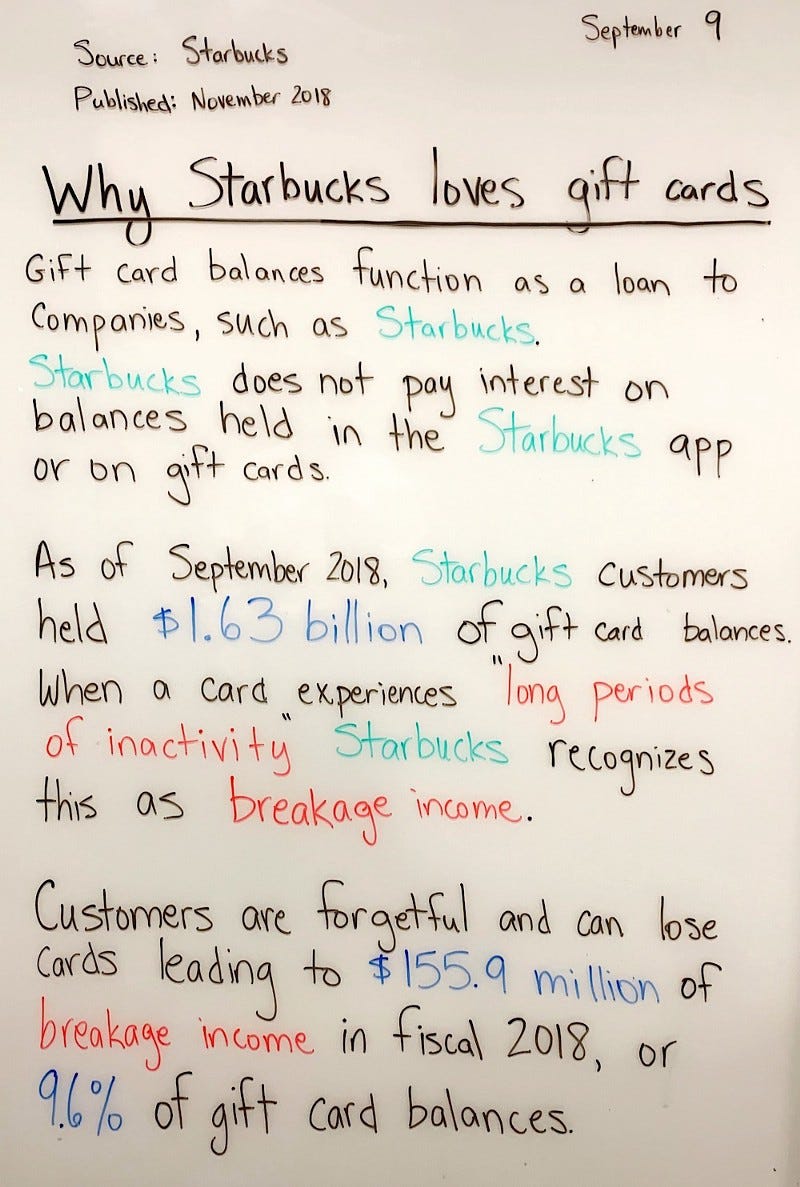 September 9
Source: Starbucks
Published: November 2018
Why Starbucks loves gift cards
Gift card balances function as a loan to
Companies, such as Starbucks.
Starbucks does not pay interest on
balances held in the Starbucks app
or on gift cards.
As of September 2018, Starbucks customers
held $1.63 billion of gift card balances.
When a card experiences "long periods
of inactivity" Starbucks recognizes
this as breakage income.
Customers are forgetful and can lose
cards leading to $155.9 million of
breakage income in fiscal 2018, or
9.6% of gift card balances.